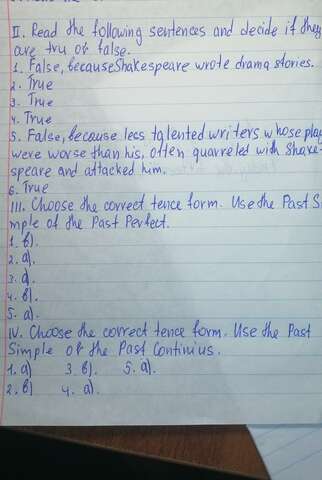 II. Read the following sentences and decide if they
are tru or false.
1. False, because Shakespeare wrote drama stories.
2. True
3. True
4. True
5. False, because less talented writers whose play
were worse than his, often quarreled with Shake-
speare and attacked him.
6. True
III. Choose the correct tence form. Use the Past Si
mple of the Past Perfect.
1. b).
2. a).
3. a).
4. b).
5. a).
IV. Choose the correct tence form. Use the Past
Simple of the Past Continius.
1. a) 3. b). 5. a).
2. b) 4. a).